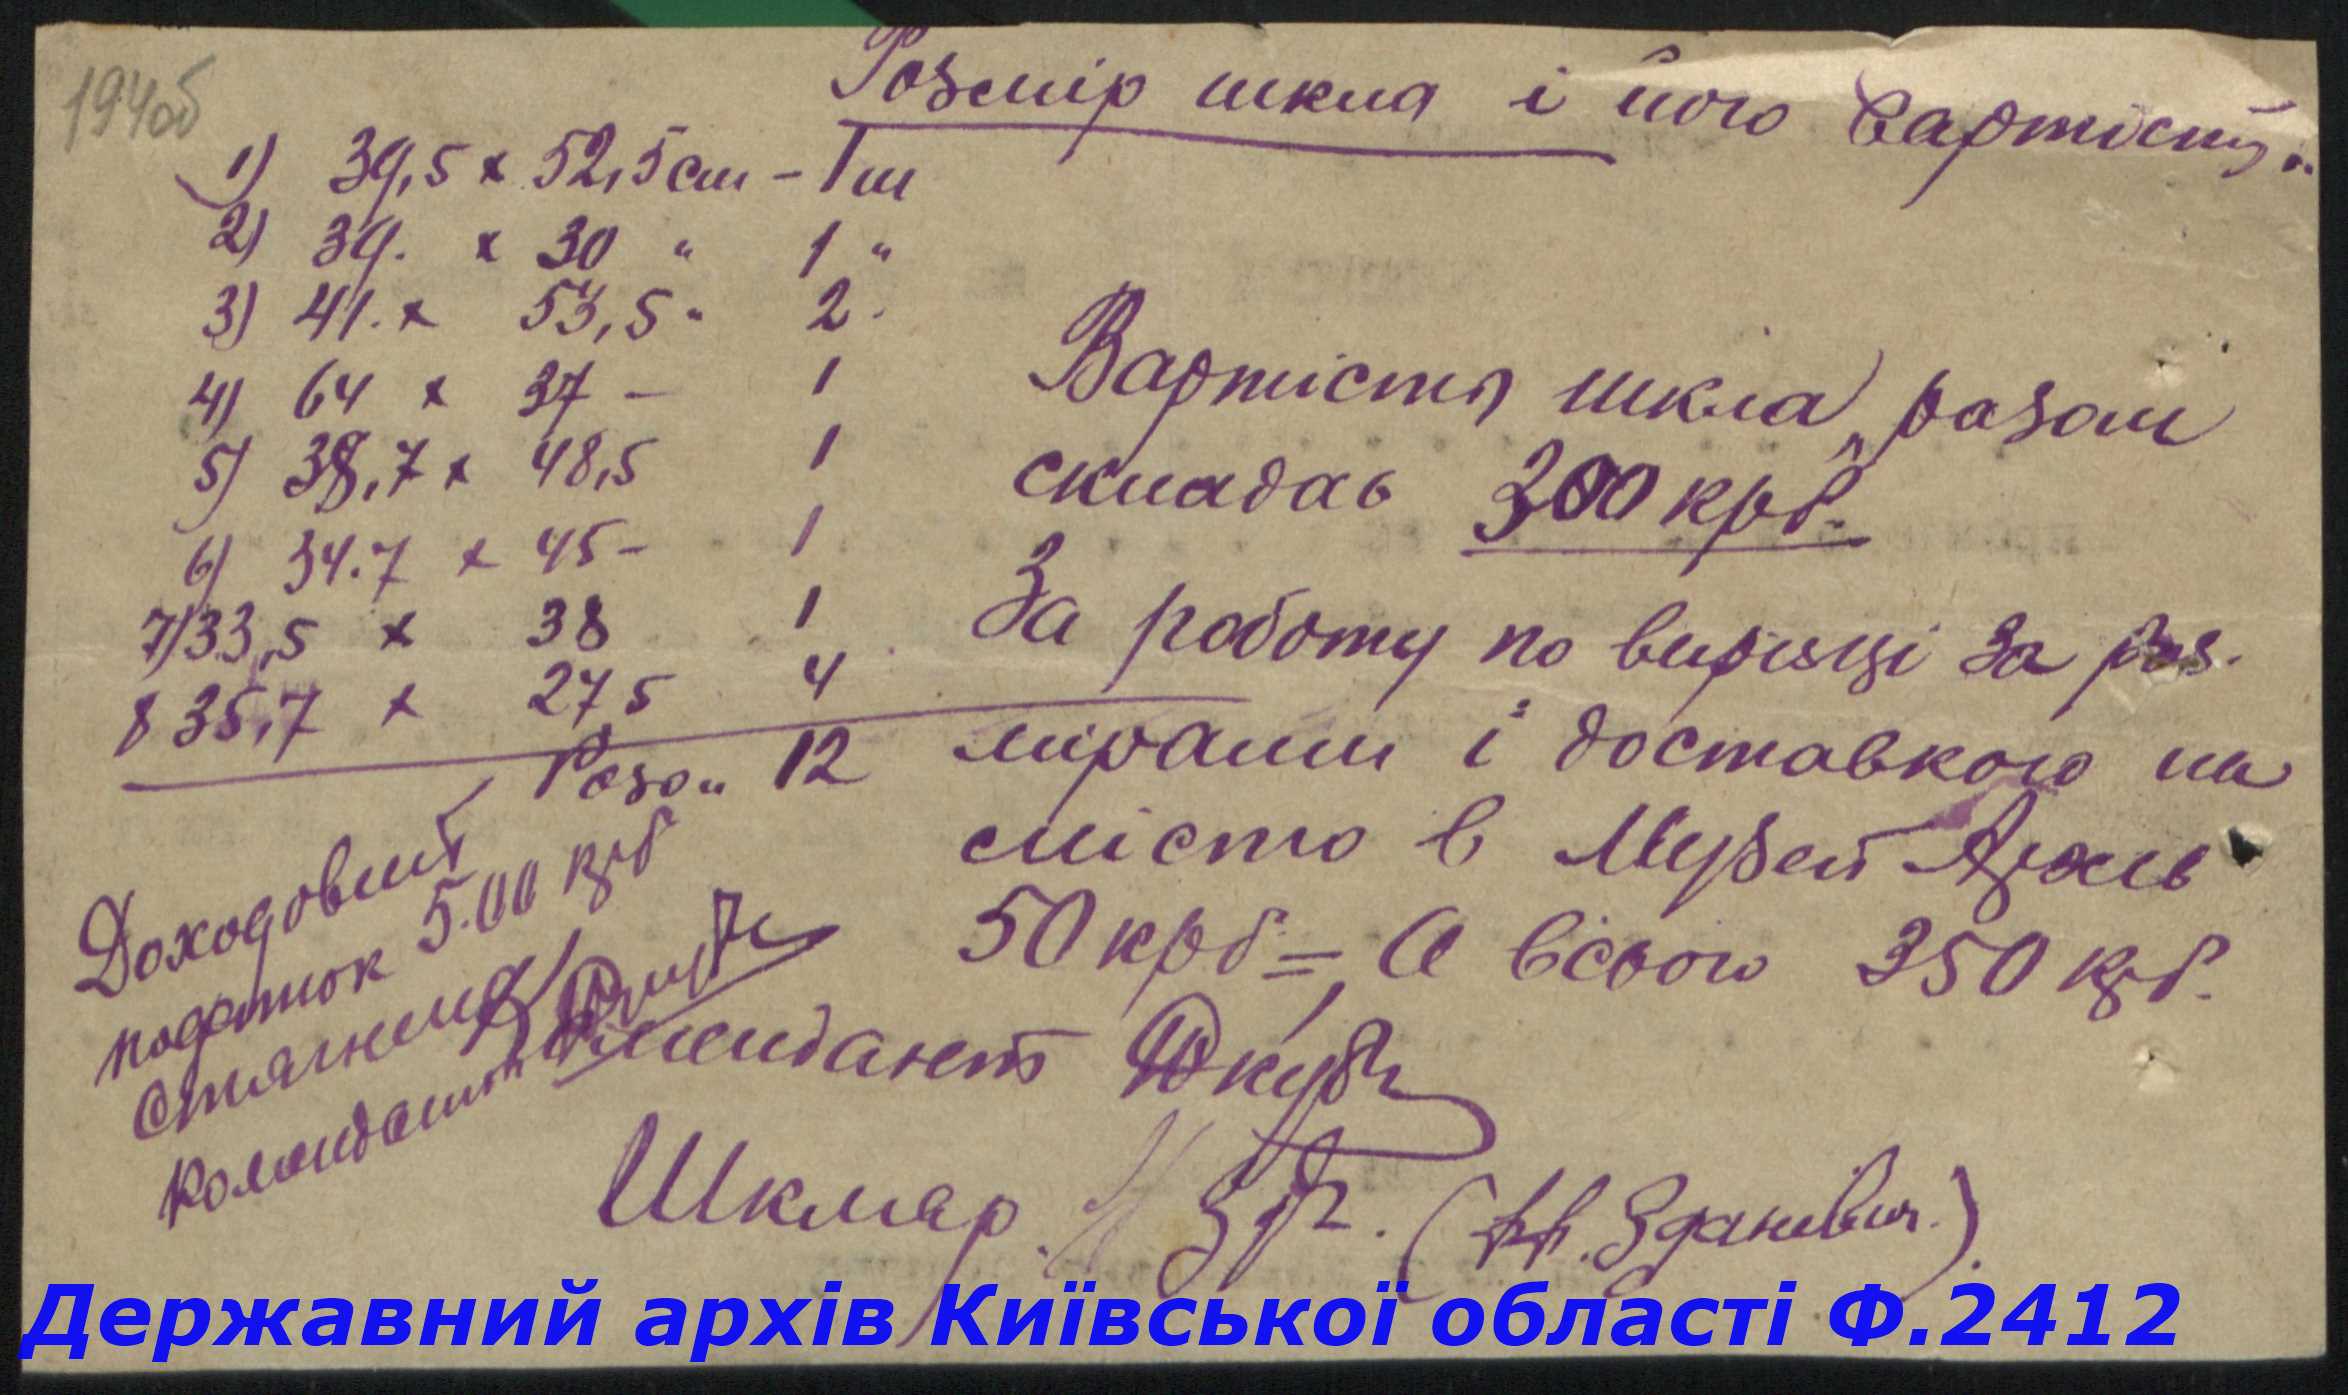 194об
Розмір шкла і його вартість:
1) 39,5 x 52,5 см – 1 ш
2) 39. x 30 " 1 "
3) 41. x 53,5 " 2 "
4) 64 x 37 – 1
5) 38,7 x 48,5 1
6) 34.7 x 45 – 1
7) 33,5 x 38 1
8 35,7 x 27,5 4
Разом 12
Вартість шкла разом
складає 300 крб.
За работу по вирізці за роз.
мірами і доставкою на
місто в Музей
50 крб = А всього 350 крб.
Комендант
Шкляр. (Зданевич.)
Доходовий
податок 5.00 крб
стягнено
комендант
Державний архів Київської області Ф.2412